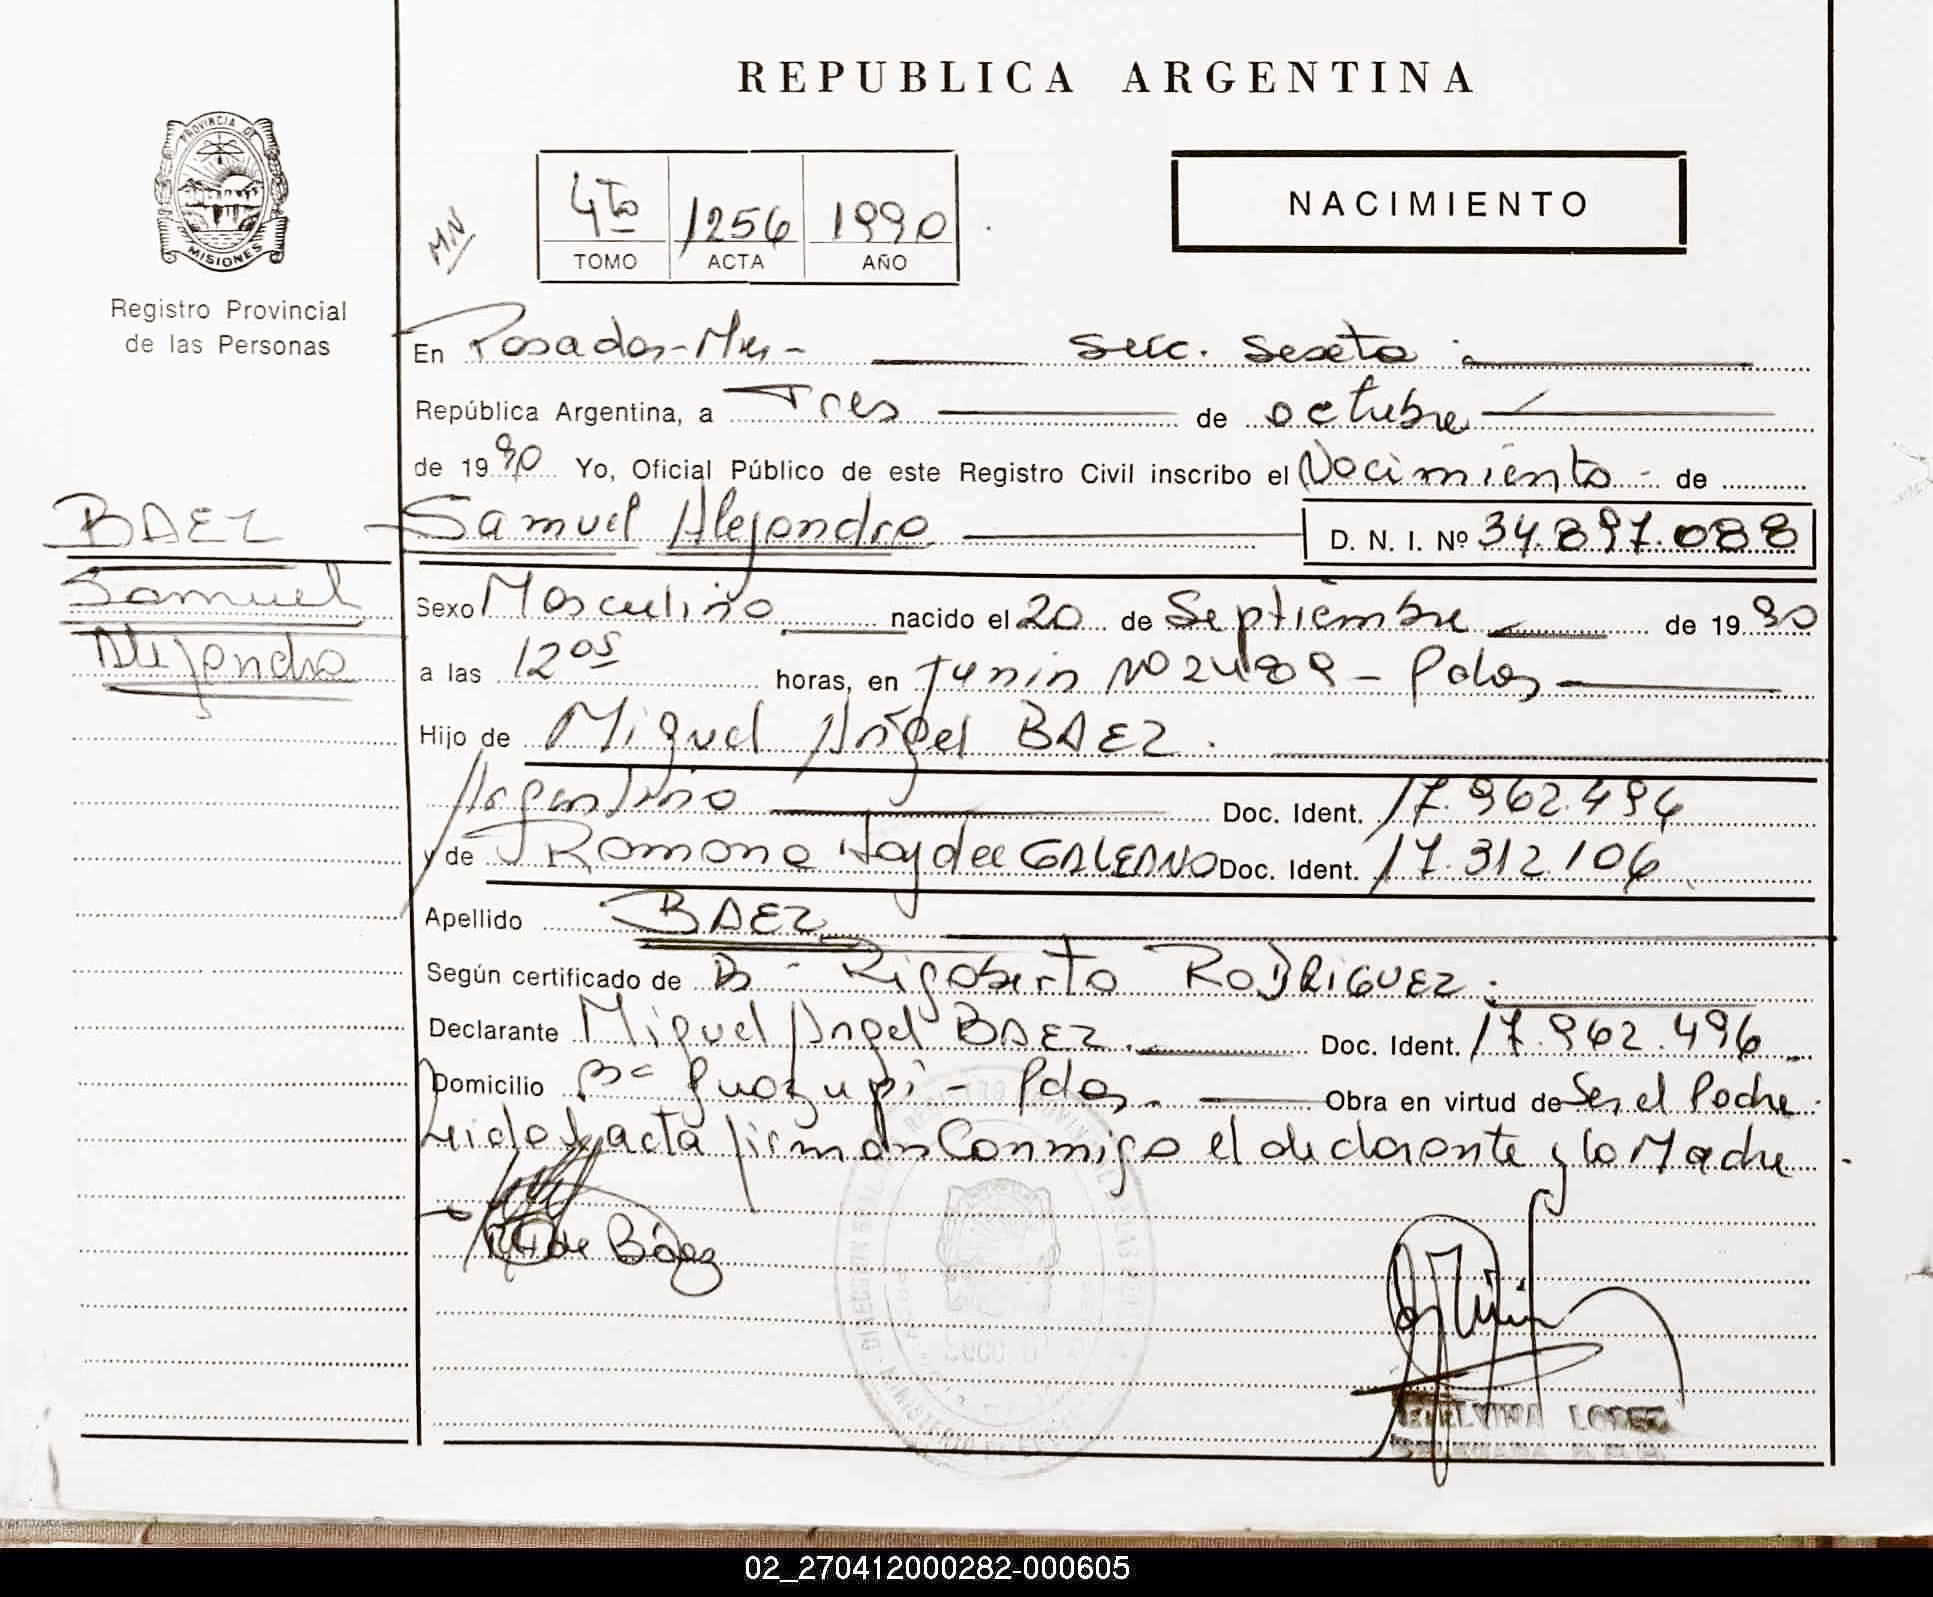 REPUBLICA ARGENTINA
PROVINCIA DE
MISIONES
Registro Provincial
de las Personas
MN
4to 1256 1990
TOMO ACTA AÑO
NACIMIENTO
En Posadas-Mnes- Secc. Sexta
República Argentina, a Tres de octubre
de 1990 Yo, Oficial Público de este Registro Civil inscribo el Nacimiento - de
BAEZ
Samuel
Alejandro
Samuel Alejandro D. N. I. Nº 34.897.088
Sexo Masculino nacido el 20 de Septiembre de 1990
a las 12 05 horas, en Junin Nº - Pdas
Hijo de Miguel Angel BAEZ.
Argentino Doc. Ident. 17.962.496
y de Ramona Haydee GALEANO Doc. Ident. 17.312.106
Apellido BAEZ
Según certificado de Rigoberto RODRIGUEZ.
Declarante Miguel Angel BAEZ. Doc. Ident. 17.962.496
Domicilio Bº Guazupi - Pdas. Obra en virtud de Ser el Padre.
Leida el acta firman Conmigo el declarante y la Madre
de Báez
ETELVINA LOPEZ
02_270412000282-000605